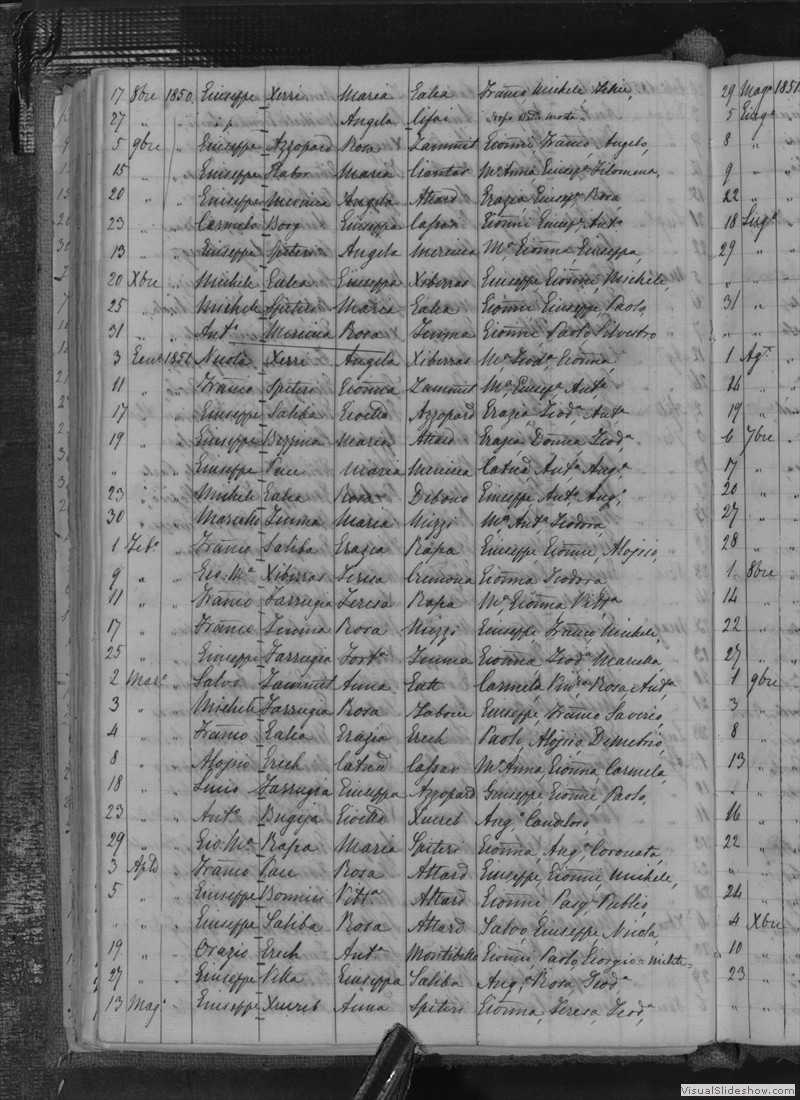 17 8bre 1850 Giuseppe Xerri Maria Galea Franco, Michele,
27 " " Angela
5 9bre " Giuseppe Azzopard Rosa Zammit Gionni, Franco, Angelo,
15 " " Giuseppe Maria Ciantar Mª Anna, Giusepª, Filomena,
20 " " Giuseppe Mercieca Angela Attard Grazia, Giusepª, Rosa,
23 " " Carmelo Borg Giuseppa Cassar Gionni, Giusepe, Antº
13 " " Giuseppe Spiteri Angela Mercieca Mª Gionna, Giuseppa,
20 Xbre " Michele Galea Giuseppa Xiberras Giuseppe, Gionni, Michele,
25 " " Michele Spiteri Maria Galea Gionni, Giuseppe, Paolo,
31 " " Antº Mercieca Rosa Gionni, Paolo, Silvestro
3 Gen: 1851 Nicola Xerri Angela Xiberras Mª, Teodª, Gionna,
11 " " Franco Spiteri Gionna Zammit Mª, Giusepª, Antª
17 " " Giuseppe Saliba Azzopard Grazia, Teodª, Antª
19 " " Giuseppe Bezzina Maria Attard Grazia, Donna, Teodª
" " " Giuseppe Pace Maria Mercieca Catnà, Antª, Angª
23 " " Michele Galea Rosa Debono Giuseppe, Antº, Angº
30 " " Maria Mizzi Mª, Antª, Teodora,
1 Febº " Franco Saliba Grazia Rapa Giuseppe, Gionni, Alojsio,
9 " " Gio: Mª Xiberras Teresa Cremona Gionna, Teodora
11 " " Franco Farrugia Teresa Rapa Mª, Gionna, Vittª
17 " " Franco Rosa Mizzi Giuseppe, Franco, Michele,
25 " " Giuseppe Farrugia Fortª Gionna, Teodª, Marietta,
2 Marº " Salvo Zammit Anna Carmela, Rosa, Antª
3 " " Michele Farrugia Rosa Giuseppe, Franco, Saverio,
4 " " Franco Galea Grazia Grech Paolo, Alojsio, Demetrio,
8 " " Alojsio Grech Catnà Cassar Mª Anna, Gionna, Carmela,
18 " " Farrugia Giuseppa Azzopard Giuseppe, Gionni, Paolo,
23 " " Antº Bugeja Xuereb Angº, Candeloro,
29 " " Gio: Mª Rapa Maria Spiteri Gionna, Angª, Coronata,
3 Aple " Franco Pace Rosa Attard Giuseppe, Gionni, Michele,
5 " " Giuseppe Bonnici Vittª Attard Gionni, Pasqº, Publio,
" " " Giuseppe Saliba Rosa Attard Salvo, Giuseppe, Nicola
19 " " Orazio Grech Antª Montebello Gionni, Paolo, Giorgio
27 " " Giuseppe Vella Giuseppa Saliba Angª, Rosa, Teodª
13 Magº " Giuseppe Xuereb Anna Spiteri Gionna, Teresa, Teodª
29 Mago 1851
5 Giugº
8 "
9 "
22 "
18 Lugº
29 "
31 "
" "
1 Agº
14 "
19 "
6 7bre
17 "
20 "
27 "
28 "
1 8bre
14 "
22 "
27 "
1 9bre
3 "
8 "
13 "
" "
16 "
22 "
24 "
4 Xbre
10 "
23 "
" "
VisualSlideshow.com